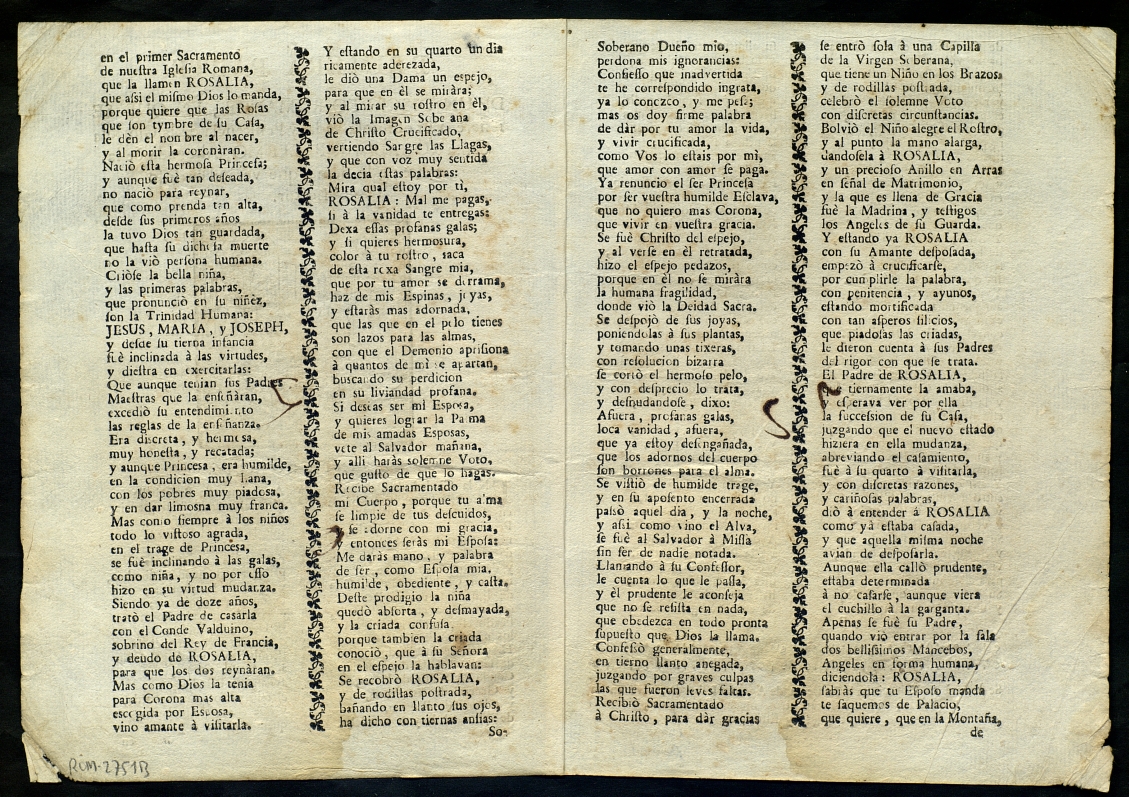 en el primer Sacramento
de nueſtra Igleſia Romana,
que la llamen ROSALIA,
que aſsi el miſmo Dios lo manda,
porque quiere que las Roſas
que ſon tymbre de ſu Caſa,
le dèn el nombre al nacer,
y al morir la coronàran.
Naciò eſta hermoſa Princeſa;
y aunque fuè tan deſeada,
no naciò para reynar,
que como prenda tan alta,
deſde ſus primeros años
la tuvo Dios tan guardada,
que haſta ſu dichoſa muerte
no la viò perſona humana.
Criòſe la bella niña,
y las primeras palabras,
que pronunciò en ſu niñèz,
ſon la Trinidad Humana:
JESUS, MARIA, y JOSEPH,
y deſde ſu tierna infancia
fuè inclinada à las virtudes,
y dieſtra en exercitarlas:
Que aunque tenian ſus Padres
Maeſtras que la enſeñàran,
excediò ſu entendimiento
las reglas de la enſeñanza.
Era diſcreta, y hermoſa,
muy honeſta, y recatada;
y aunque Princeſa, era humilde,
en la condicion muy llana,
con los pobres muy piadoſa,
y en dar limoſna muy franca.
Mas como ſiempre à los niños
todo lo viſtoso agrada,
en el trage de Princeſa,
ſe fuè inclinando à las galas,
como niña, y no por eſſo
hizo en ſu virtud mudanza.
Siendo ya de doze años,
tratò el Padre de caſarla
con el Conde Valduino,
sobrino del Rey de Francia,
y deudo de ROSALIA,
para que los dos reynàran.
Mas como Dios la tenia
para Corona mas alta
eſcogida por Eſpoſa,
vino amante à viſitarla.
Y eſtando en ſu quarto un dia
ricamente aderezada,
le diò una Dama un eſpejo,
para que en èl ſe miràra;
y al mirar ſu roſtro en èl,
viò la Imagen Soberana
de Chriſto Crucificado,
vertiendo Sangre las Llagas,
y que con voz muy ſentida
la decia eſtas palabras:
Mira qual eſtoy por ti,
ROSALIA: Mal me pagas,
ſi à la vanidad te entregas:
Dexa eſſas profanas galas;
y ſi quieres hermoſura,
color à tu roſtro, ſaca
de eſta roxa Sangre mia,
que por tu amor ſe derrama,
haz de mis Eſpinas, joyas,
y eſtaràs mas adornada,
que las que en el pelo tienes
son lazos para las almas,
con que el Demonio apriſiona
à quantos de mì ſe apartan,
buſcando ſu perdicion
en ſu liviandad profana.
Si deſeas ſer mi Eſpoſa,
y quieres lograr la Palma
de mis amadas Eſpoſas,
vete al Salvador mañana,
y alli haràs ſolemne Voto,
que guſto de que lo hagas.
Recibe Sacramentado
mi Cuerpo, porque tu alma
ſe limpie de tus deſcuidos,
y ſe adorne con mi gracia,
y entonces ſeràs mi Eſpoſa:
Me daràs mano, y palabra
de ſer, como Eſpoſa mia,
humilde, obediente, y caſta.
Deſte prodigio la niña
quedò abſorta, y deſmayada,
y la criada confuſa,
porque tambien la criada
conociò, que à ſu Señora
en el eſpejo la hablavan:
Se recobrò ROSALIA,
y de rodillas poſtrada,
bañando en llanto ſus ojos,
ha dicho con tiernas anſias:
So-
Soberano Dueño mio,
perdona mis ignorancias:
Confieſſo que inadvertida
te he correſpondido ingrata,
ya lo conozco, y me peſa;
mas os doy firme palabra
de dàr por tu amor la vida,
y vivir crucificada,
como Vos lo eſtais por mì,
que amor con amor ſe paga.
Ya renuncio el ſer Princeſa
por ſer vueſtra humilde Eſclava,
que no quiero mas Corona,
que vivir en vueſtra gracia.
Se fuè Chriſto del eſpejo,
y al verſe en èl retratada,
hizo el eſpejo pedazos,
porque en èl no ſe miràra
la humana fragilidad,
donde viò la Deidad Sacra.
Se deſpojò de ſus joyas,
poniendolas à ſus plantas,
y tomando unas tixeras,
con reſolucion bizarra
ſe cortò el hermoſo pelo,
y con deſprecio lo trata,
y deſnudandoſe, dixo:
Afuera, profanas galas,
loca vanidad, afuera,
que ya eſtoy deſengañada,
que los adornos del cuerpo
ſon borrones para el alma.
Se viſtiò de humilde trage,
y en ſu apoſento encerrada
paſsò aquel dia, y la noche,
y aſsi como vino el Alva,
ſe fuè al Salvador à Miſſa
ſin ſer de nadie notada.
Llamando à ſu Confeſſor,
le cuenta lo que le paſſa,
y èl prudente le aconſeja
que no ſe reſiſta en nada,
que obedezca en todo pronta
ſupueſto que Dios la llama.
Confeſsò generalmente,
en tierno llanto anegada,
juzgando por graves culpas
las que fueron leves faltas.
Recibiò Sacramentado
à Chriſto, para dàr gracias
ſe entrò ſola à una Capilla
de la Virgen Soberana,
que tiene un Niño en los Brazos,
y de rodillas poſtrada,
celebrò el ſolemne Voto
con diſcretas circunſtancias.
Bolviò el Niño alegre el Roſtro,
y al punto la mano alarga,
dandoſela à ROSALIA,
y un precioſo Anillo en Arras
en ſeñal de Matrimonio,
y la que es llena de Gracia
fuè la Madrina, y teſtigos
los Angeles de ſu Guarda.
Y eſtando ya ROSALIA
con ſu Amante deſpoſada,
empezò à crucificarſe,
por cumplirle la palabra,
con penitencia, y ayunos,
eſtando mortificada
con tan aſperos ſilicios,
que piadoſas las criadas,
le dieron cuenta à ſus Padres
del rigor con que ſe trata.
El Padre de ROSALIA,
que tiernamente la amaba,
y eſperava ver por ella
la ſucceſsion de ſu Caſa,
juzgando que el nuevo eſtado
hiziera en ella mudanza,
abreviando el caſamiento,
fuè à ſu quarto à viſitarla,
y con diſcretas razones,
y cariñoſas palabras,
diò à entender à ROSALIA
como yà eſtaba caſada,
y que aquella miſma noche
avian de deſpoſarla.
Aunque ella callò prudente,
eſtaba determinada
à no caſarſe, aunque viera
el cuchillo à la garganta.
Apenas ſe fuè ſu Padre,
quando viò entrar por la ſala
dos belliſsimos Mancebos,
Angeles en forma humana,
diciendola: ROSALIA,
ſabràs que tu Eſpoſo manda
te ſaquemos de Palacio,
que quiere, que en la Montaña,
de
RCM-2751B